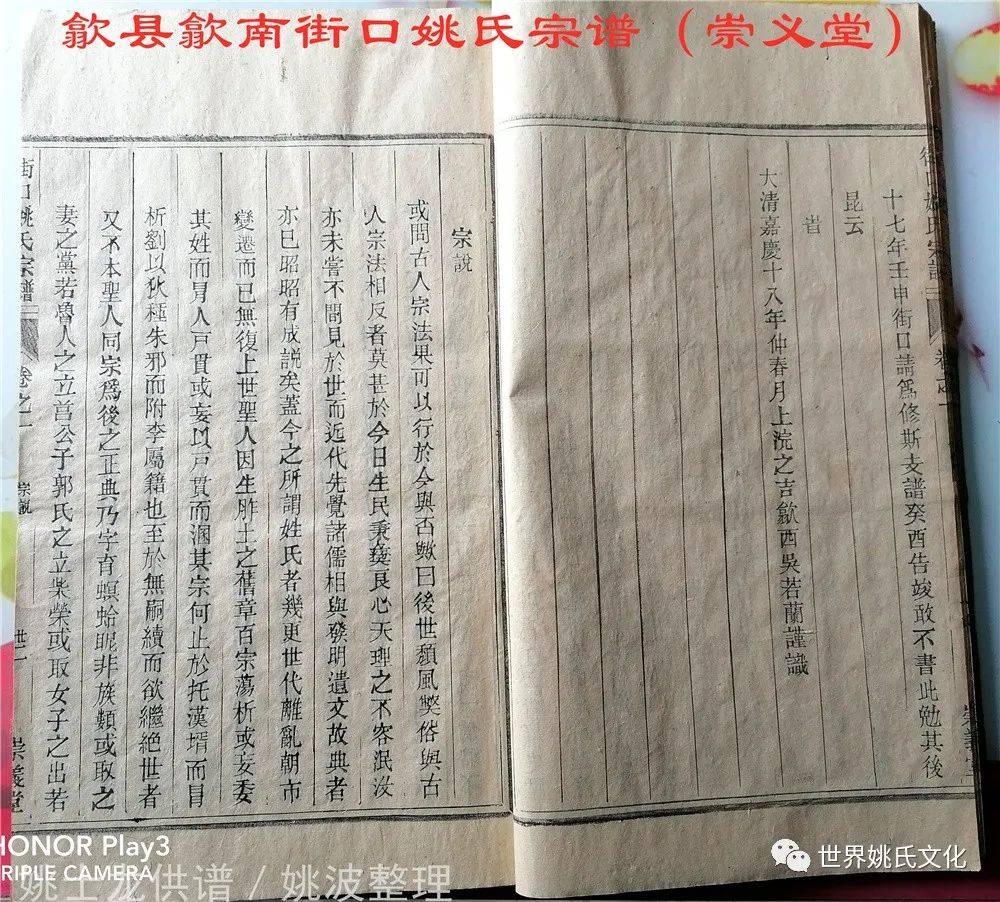 歙县歙南街口姚氏宗谱（崇义堂）
十七年壬申街口請爲修斯支譜癸酉告竣敢不書此勉其後
昆云
旹
大清嘉慶十八年仲春月上浣之吉歙西吳若蘭謹識
宗說
或問古人宗法果可以行於今與否歟曰後世頹風獘俗與古
人宗法相反者莫甚於今日生民秉彜良心天理之不容泯沒
亦未嘗不間見於世而近代先覺諸儒相與發明遺文故典者
亦已昭昭有成説矣蓋今之所謂姓氏者幾更世代離亂朝市
變遷而已無復上世聖人因生胙土之舊章百宗蕩析或妄委
其姓而冐人戸貫或妄以戸貫而溷其宗何止於托漢壻而冐
析劉以狄種朱邪而附李屬籍也至於無嗣續而欲繼絶世者
又不本聖人同宗爲後之正典乃字育螟蛉昵非族類或取之
妻之黨若魯人之立莒公子郭氏之立柴榮或取女子之出若
街口姚氏宗譜
卷之一
宗說
世二
崇義堂
HONOR Play3
TRIPLE CAMERA
供谱 / 姚波整理
世界姚氏文化